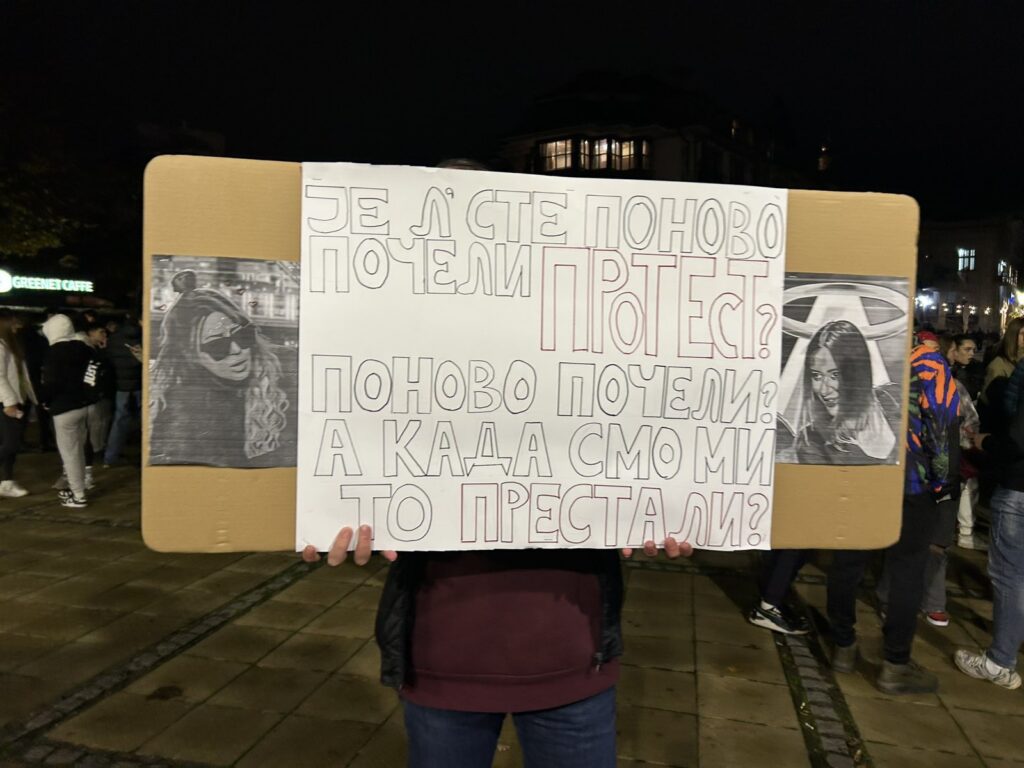 ЈЕ Л' СТЕ ПОНОВО
ПОЧЕЛИ ПРОТЕСТ?
ПОНОВО ПОЧЕЛИ?
А КАДА СМО МИ
ТО ПРЕСТАЛИ?
GREENET CAFFE
JUST